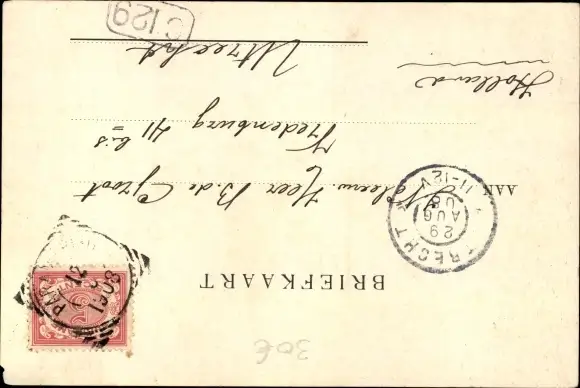 30 €
BRIEFKAART
AAN
Heer B. de Groot
Vredenburg 41 bis
Utrecht
Holland
UTRECHT
29
AUG
08
11-12V
12
1908
C 129